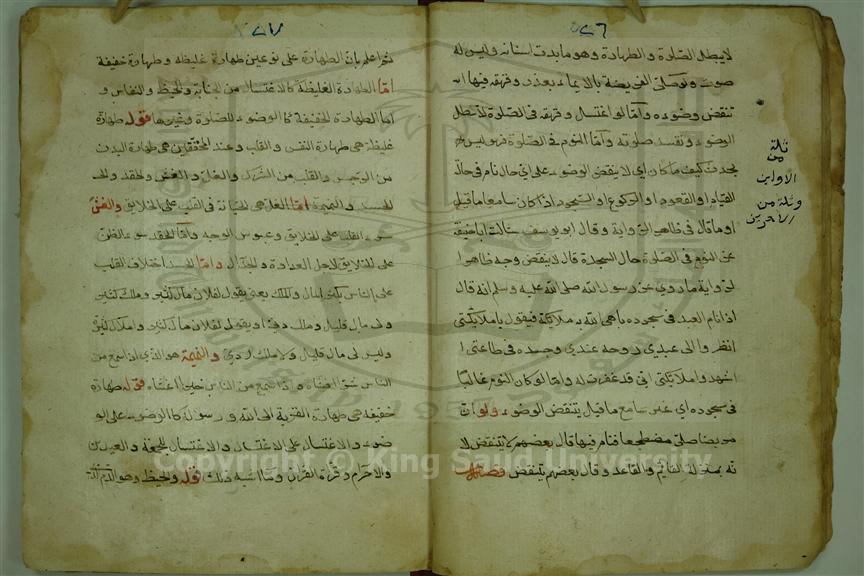 ٥٢٦
لا يبطل الصلوة والطهارة وهو ما بدت اسنانه وليس له
صوت ولو صلى الفريضة بالايماء بعذر وقهقه فيها
تنقض وضوءه وامّا لو اغتسل وقهقه فى الصلوة لا تبطل
الوضوء وتفسد صلوته وامّا النوم فى الصلوة فهو ليس
بحدث كيف ما كان اى لا ينقض الوضوء على اى حال نام فى حالة
القيام او القعود او الركوع او السجود اذا كان سامعا ما قيل
او ما قال فى ظاهر الرواية وقال ابو يوسف سئالت ابا حنيفة
عن النوم فى الصلوة حال السجدة قال لا ينقض وجه ظاهر ا
لرواية ما روى عن رسول الله صلى الله عليه وسلم انه قال
اذا نام العبد فى سجوده باهى الله به ملائكة فيقول يا ملائكتى
انظروا الى عبدى روحه عندى وجسده فى طاعتى ا
شهدوا ملائكتى انى قد غفرت له وامّا لو كان النوم غالبًا
فى سجوده اى غير سامع ما قيل ينتقض الوضوء ولو ان
مريضا صلى مضطجعا فنام فيها قال بعضهم لا تنقض لا
نه بمنزلة القائم والقاعد وقال بعضهم ينتقض فصل
ثلة
من
الأولين
وثلة من
الآخرين
اعلم بان الطهارة على نوعين طهارة غليظة وطهارة خفيفة
امّا الطهارة الغليظة كالاغتسال من الجنابة والحيظ والنفاس و
اما الطهارة الخفيفة كالوضوء للصلوة وغيرها قوله طهارة
غليظة هى طهارة النفس والقلب وعند المحققين هى طهارة البدن
من والقلب من الشرك والغل والغش والحقد و
الحسد والنميمة امّا الغل هى الخيانة فى القلب على الخلايق والغش
سوء القلب على الخلايق وعبوس الوجه وامّا الحقد سوء الظن
على الخلايق لاجل العداوة والجدال وامّا الحسد اختلاف القلب
على الناس بكثرة المال والملك يعنى يقول لفلان مال كثير وملك كثير
ولى مال قليل وملك او يقول لفلان مال كثير واملاك كثيرة
وليس لى مال قليل ولا ملك والنميمة هو الذى اذا سمع من
الناس شرّا افشاه واذا سمع من الناس خيرا اخفاه قوله طهارة
خفيفة هى طهارة القربة الى الله ورسوله كالوضوء على الو
ضوء والاغتسال على الاغتسال والاغتسال للجمعة والعيدين
والاحرام وقراءة القرآن وما اشبه ذلك قوله والحيظ وهو الدم
Copyright © King Saud University